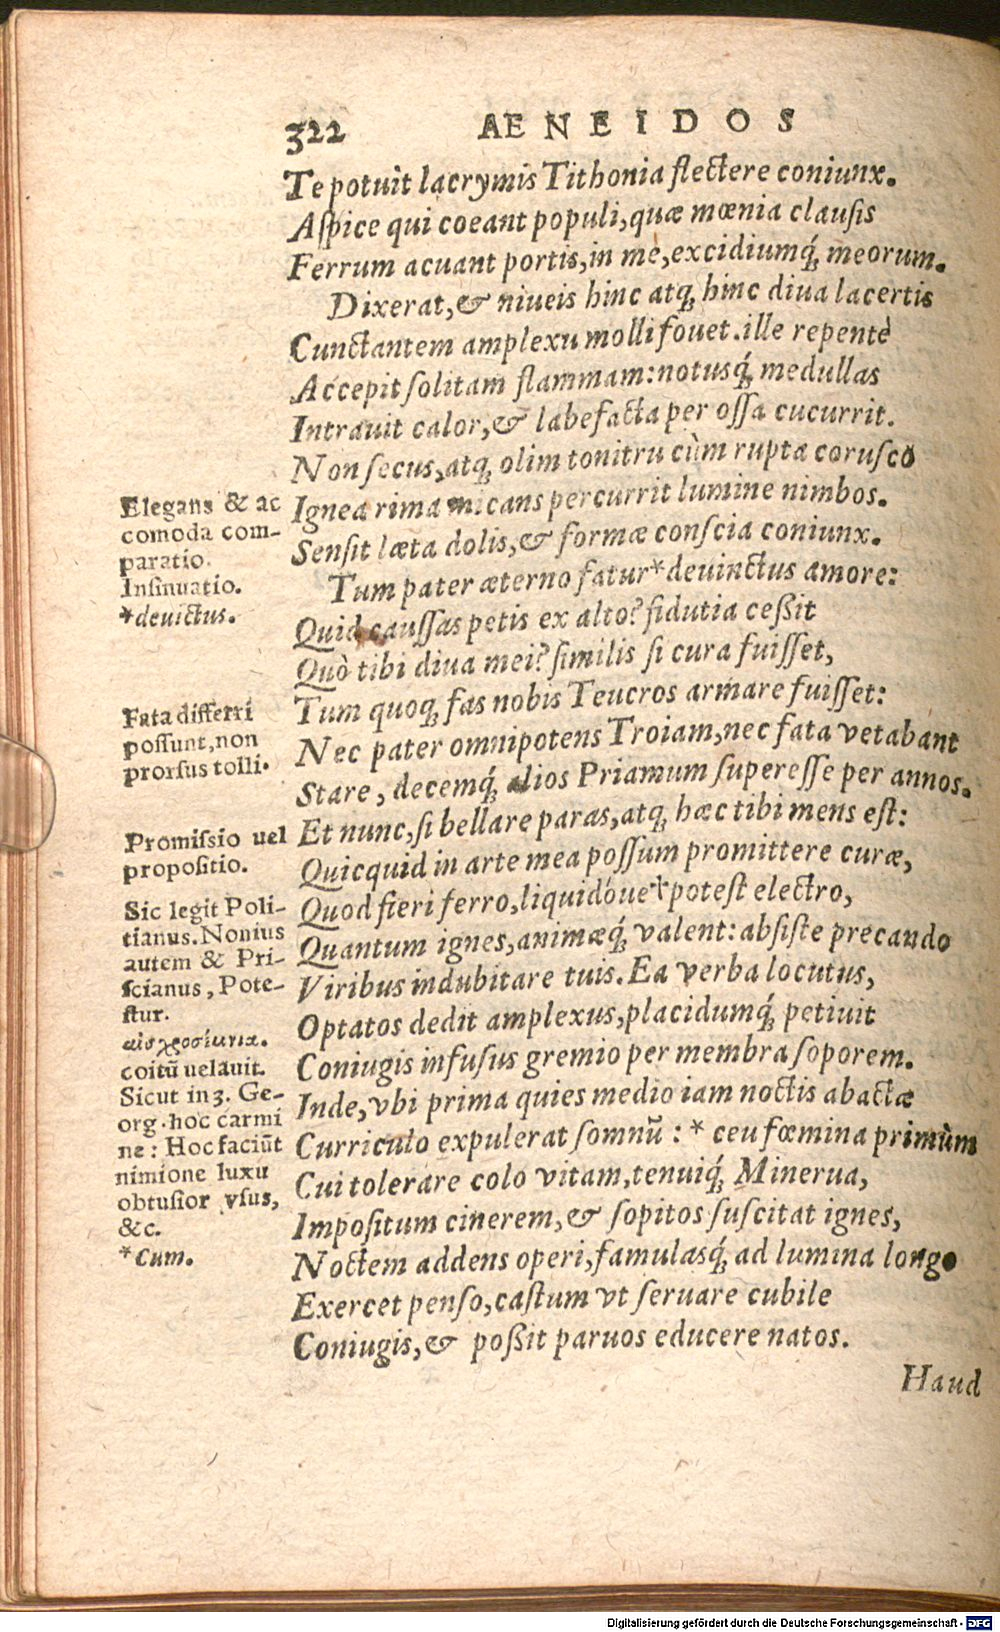 322 AENEIDOS
Te potuit lacrymis Tithonia flectere coniunx.
Aſpice qui coeant populi, quæ mœnia clauſis
Ferrum acuant portis, in me, excidiumq́ꝫ meorum.
Dixerat, & niueis hinc atqꝫ hinc diua lacertis
Cunctantem amplexu molli fouet. ille repentè
Accepit ſolitam flammam: notusq́ꝫ medullas
Intrauit calor, & labefacta per oſſa cucurrit.
Non ſecus, atqꝫ olim tonitru cùm rupta coruſco
Ignea rima micans percurrit lumine nimbos.
Senſit læta dolis, & formæ conſcia coniunx.
Tum pater æterno fatur * deuinctus amore:
Quid cauſſas petis ex alto? fidutia ceßit
Quò tibi diua mei? ſimilis ſi cura fuiſſet,
Tum quoqꝫ fas nobis Teucros armare fuiſſet:
Nec pater omnipotens Troiam, nec fata vetabant
Stare, decemq́ꝫ alios Priamum ſupereſſe per annos.
Et nunc, ſi bellare paras, atqꝫ hæc tibi mens eſt:
Quicquid in arte mea poſſum promittere curæ,
Quod fieri ferro, liquidóue * poteſt electro,
Quantum ignes, animæq́ꝫ valent: abſiſte precando
Viribus indubitare tuis. Ea verba locutus,
Optatos dedit amplexus, placidumq́ꝫ petiuit
Coniugis infuſus gremio per membra ſoporem.
Inde, vbi prima quies medio iam noctis abactæ
Curriculo expulerat ſomnũ: * ceu fœmina primùm
Cui tolerare colo vitam, tenuiq́ꝫ Minerua,
Impoſitum cinerem, & ſopitos ſuſcitat ignes,
Noctem addens operi, famulasq́ꝫ ad lumina longo
Exercet penſo, caſtum vt ſeruare cubile
Coniugis, & poßit paruos educere natos.
Haud
Elegans & ac
comoda com-
paratio.
Inſinuatio.
*deuictus.
Fata differri
poſſunt, non
prorſus tolli.
Promiſsio uel
propoſitio.
Sic legit Poli-
tianus. Nonius
autem & Pri-
ſcianus, Pote-
ſtur.
coitũ uelauit.
Sicut in 3. Ge-
org. hoc carmi
ne: Hoc faciũt
nimione luxu
obtuſior vſus,
&c.
*Cum.
Digitalisierung gefördert durch die Deutsche Forschungsgemeinschaft - DFG